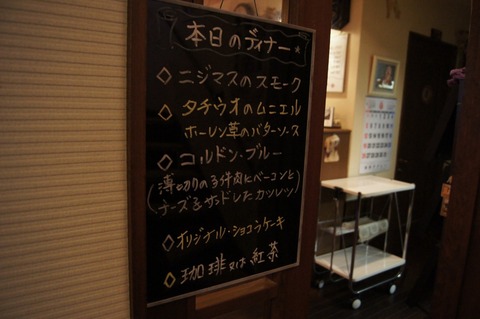 本日のディナー*
◇ニジマスのスモーク
◇タチウオのムニエル
ホーレン草のバターソース
◇コルドン・ブルー
(薄切りの子牛肉にベーコンと
チーズをサンドしたカツレツ)
◇オリジナル・ショコラケーキ
◇珈琲又は紅茶